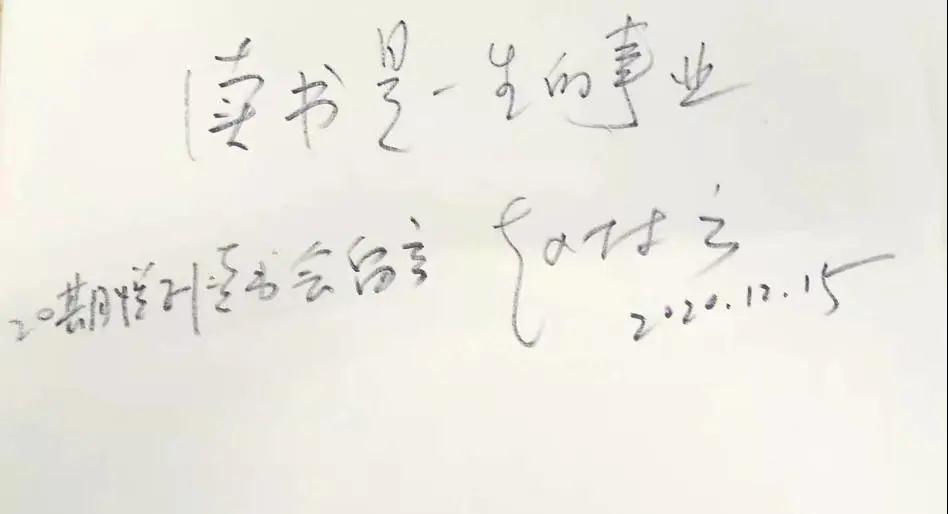 读书是一生的事业
20期增刊读书会留言
2020.12.15